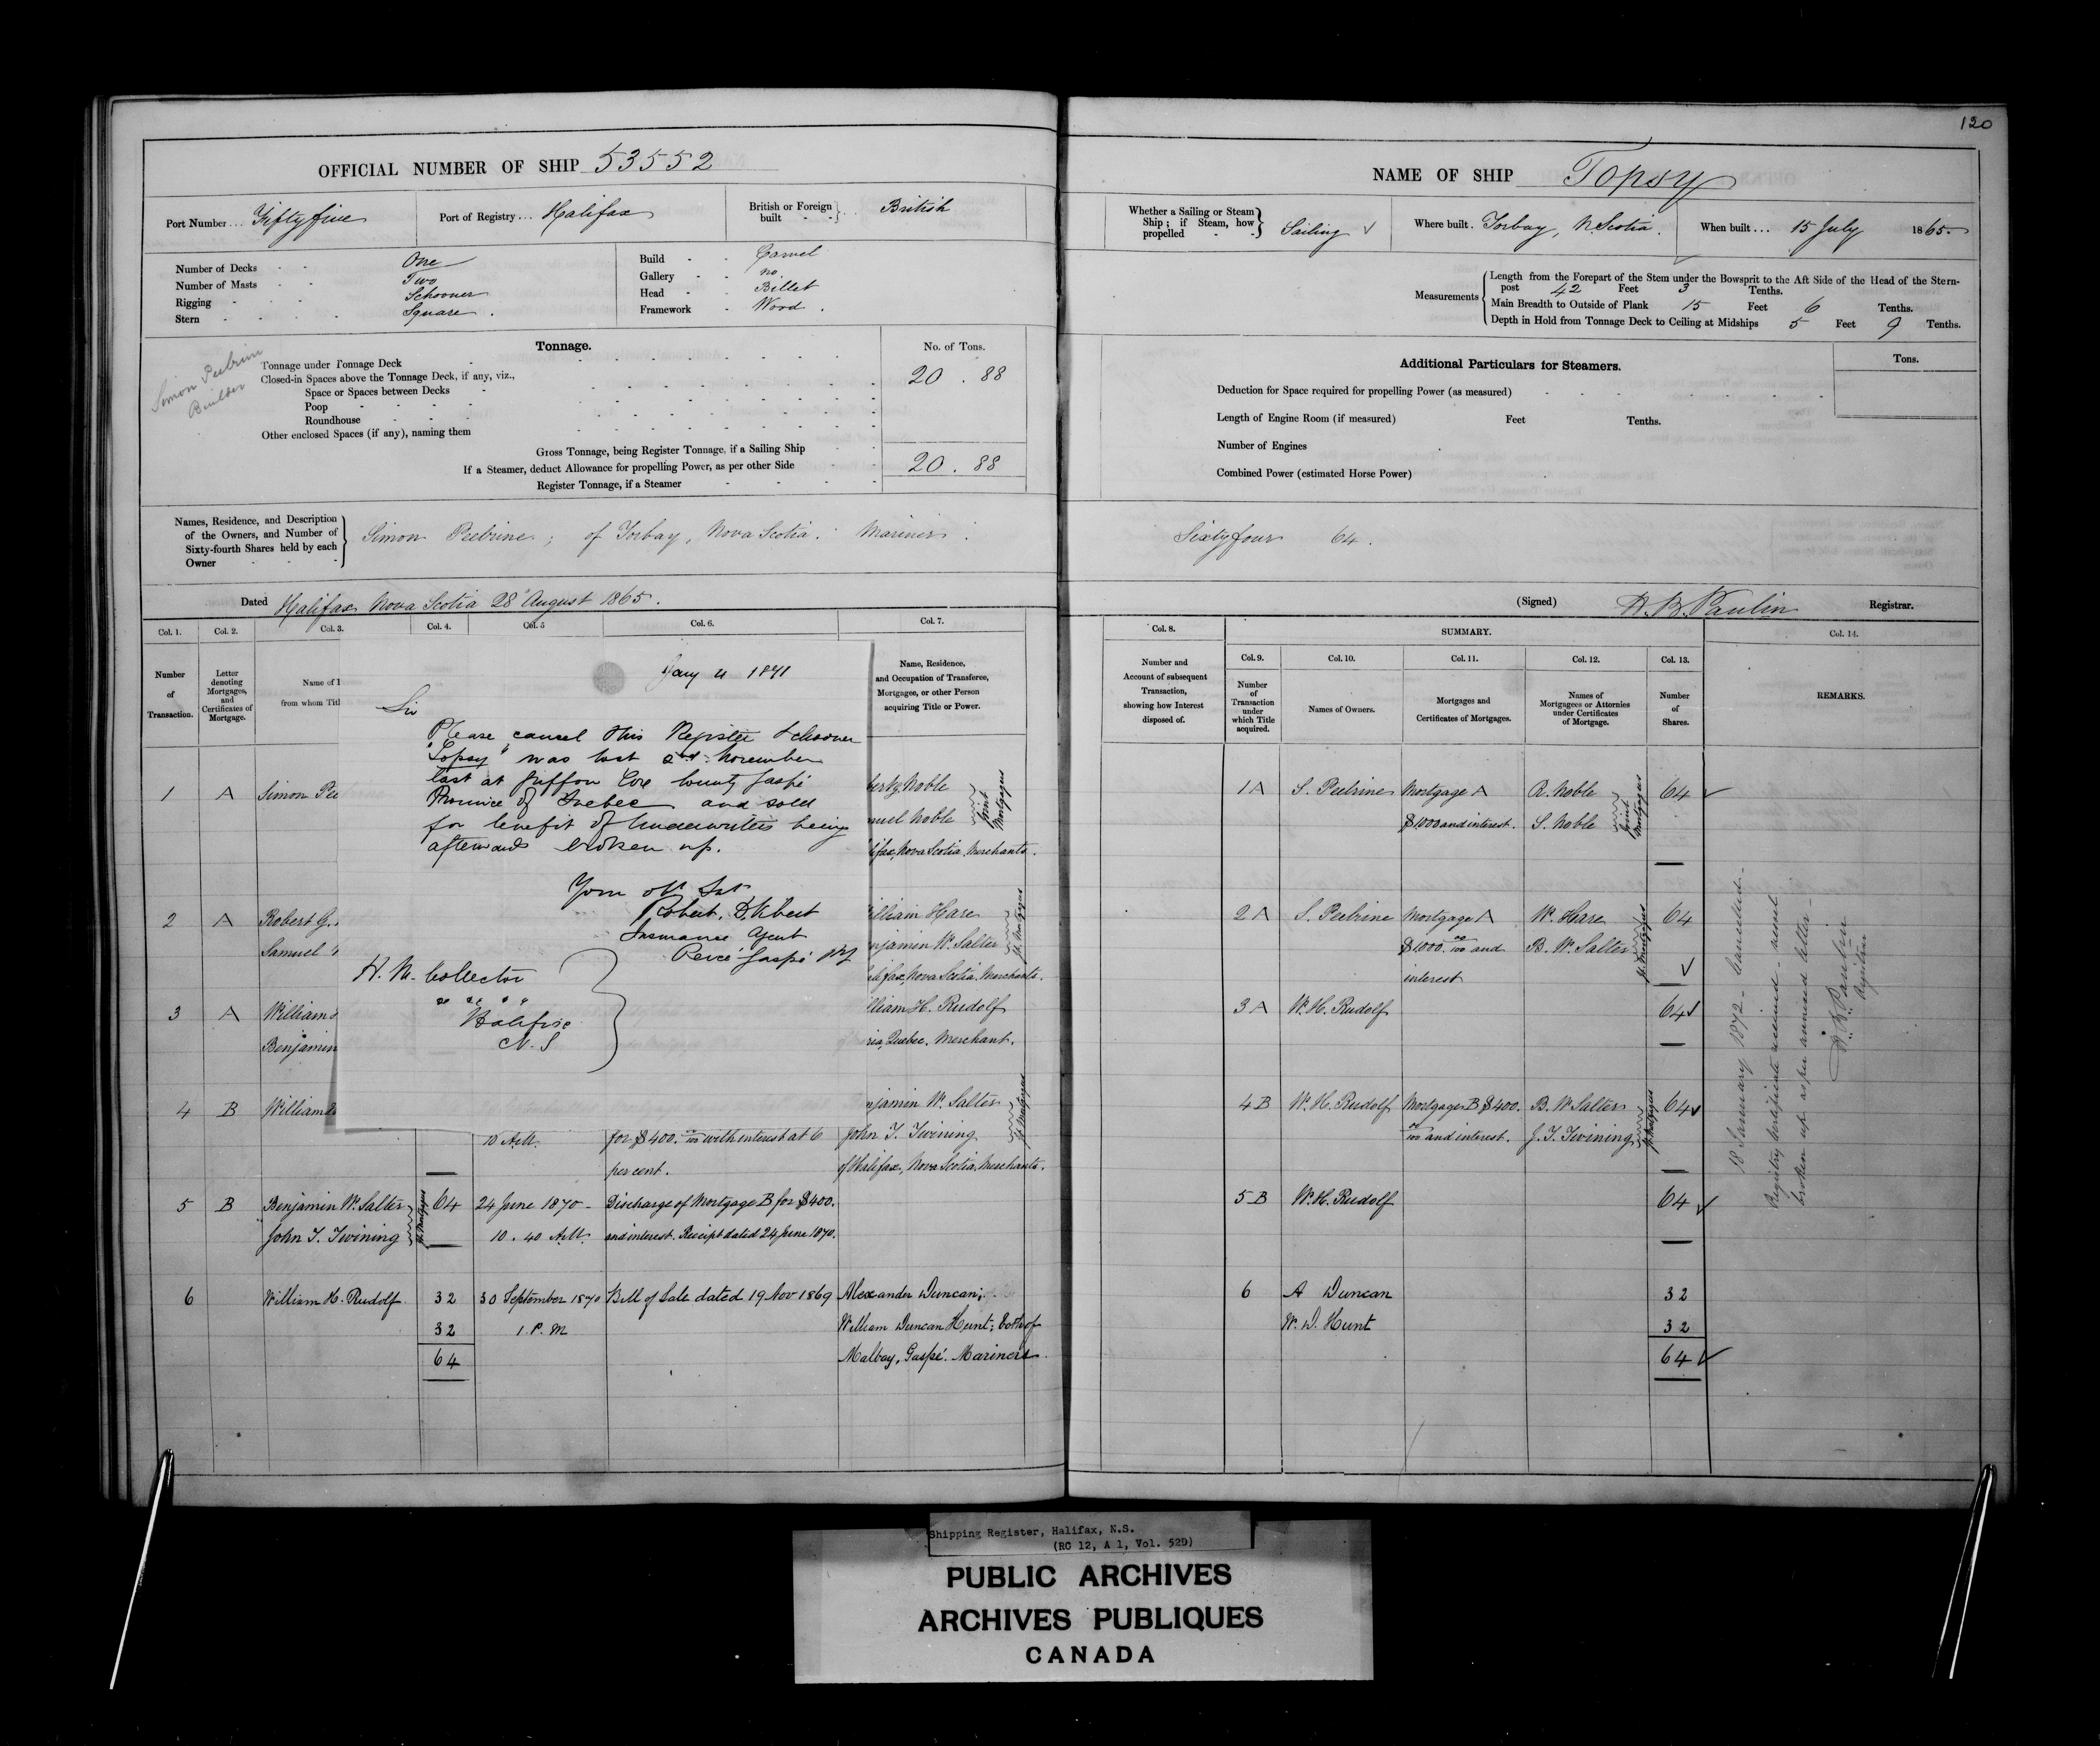 120
OFFICIAL NUMBER OF SHIP 53552
Port Number... Fiftyfive
Port of Registry... Halifax
British or Foreign built British
Number of Decks One
Number of Masts Two
Rigging Schooner
Stern Square.
Build Carvel
Gallery no.
Head Billet
Framework Wood.
Simon
Builder
Tonnage.
No. of Tons.
Tonnage under Tonnage Deck 20.88
Closed-in Spaces above the Tonnage Deck, if any, viz.,
Space or Spaces between Decks
Poop
Roundhouse
Other enclosed Spaces (if any), naming them
Gross Tonnage, being Register Tonnage, if a Sailing Ship
If a Steamer, deduct Allowance for propelling Power, as per other Side 20.88
Register Tonnage, if a Steamer
Names, Residence, and Description
of the Owners, and Number of
Sixty-fourth Shares held by each
Owner
Simon Peebrine; of Torbay, Nova Scotia. Mariner.
Dated Halifax Nova Scotia 28 August 1865.
Col. 1.
Col. 2.
Col. 3.
Col. 4.
Col. 5
Col. 6.
Col. 7.
Number
of
Transaction.
Letter
denoting
Mortgages,
and
Certificates of
Mortgage.
Name of
from whom Titl
Name, Residence,
and Occupation of Transferee,
Mortgagee, or other Person
acquiring Title or Power.
Jany 4 1871
Sir
Please cancel this Register Schooner
"Topsy" was lost 2nd November
last at Griffon Cove County Gaspé
Province of Quebec and sold
for benefit of Underwriters being
afterwards broken up.
Your obt Svt
Robert
Insurance Agent
Percé Gaspé
H. M. Collector
Halifax
N.S
1 A Simon Pee
Noble
nuel Noble
Joint Mortgagees
ifax, Nova Scotia, Merchants.
2 A Robert G.
illiam Hare
Samuel
njamin W. Salter
Jt. Mortgagees
Halifax, Nova Scotia, Merchants.
3 A William
lliam H. Rudolf
Benjamin
ria, Quebec. Merchant.
4 B William
njamin W. Salter
10 A.M. for $400. 00/100 with interest at 6 John T. Twining
Jt. Mortgagees
per cent. of Halifax, Nova Scotia, Merchants.
5 B Benjamin W. Salter 64 24 June 1870 - Discharge of Mortgage B for $400.
John T. Twining Jt. Mortgagees 10.40 A.M. and interest. Receipt dated 24 June 1870.
6 William H. Rudolf 32 30 September 1870 Bill of Sale dated 19 Nov 1869 Alexander Duncan;
32 1. P. M William Duncan Hunt; both of
64 Malbay, Gaspé. Mariners.
NAME OF SHIP Topsy
Whether a Sailing or Steam
Ship; if Steam, how
propelled
Sailing
Where built. Torbay, N. Scotia.
When built... 15 July 1865
Measurements
Length from the Forepart of the Stem under the Bowsprit to the Aft Side of the Head of the Stern-
post 42 Feet 3 Tenths.
Main Breadth to Outside of Plank 15 Feet 6 Tenths.
Depth in Hold from Tonnage Deck to Ceiling at Midships 5 Feet 9 Tenths.
Additional Particulars for Steamers.
Tons.
Deduction for Space required for propelling Power (as measured)
Length of Engine Room (if measured) Feet Tenths.
Number of Engines
Combined Power (estimated Horse Power)
Sixty four 64.
(Signed) H. B. Paulin Registrar.
Col. 8.
SUMMARY.
Col. 14.
Number and
Account of subsequent
Transaction,
showing how Interest
disposed of.
Col. 9.
Col. 10.
Col. 11.
Col. 12.
Col. 13.
Number
of
Transaction
under
which Title
acquired.
Names of Owners.
Mortgages and
Certificates of Mortgages.
Names of
Mortgagees or Attornies
under Certificates
of Mortgage.
Number
of
Shares.
REMARKS.
1 A S. Peebrine Mortgage A R. Noble 64
$1000 and interest. S. Noble
Joint Mortgagees
2 A S. Peebrine Mortgage A W. Hare 64
$1000. 00/100 and B. W. Salter
Jt. Mortgagees
interest
3 A W. H. Rudolf 64
4 B W. H. Rudolf Mortgage B $400. B. W. Salter 64
00/100 and interest. J. T. Twining
Jt. Mortgagees
5 B W. H. Rudolf 64
6 A Duncan 32
W. D. Hunt 32
64
18 January 1872 - Cancelled -
Registry Certificate received - vessel
broken up as per annexed letter -
H. B. Paulin
Registrar
Shipping Register, Halifax, N.S.
(RG 12, A 1, Vol. 52D)
PUBLIC ARCHIVES
ARCHIVES PUBLIQUES
CANADA